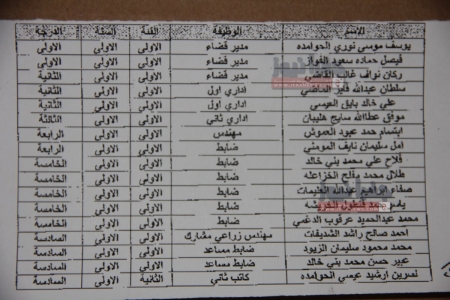 الاسم الوظيفة الفئة السنة الدرجة
يوسف موسى نوري الحوامده مدير قضاء الاولى الاولى الاولى
فيصل حماده سعود الفواز مدير قضاء الاولى الاولى الاولى
ركان نواف غالب القاضي مدير قضاء الاولى الاولى الثانية
سلطان عبدالله فايز الماضي اداري اول الاولى الاولى الثانية
علي خالد بايق العيسى اداري اول الاولى الاولى الثانية
موفق عطاالله سايح هليبان اداري ثاني الاولى الاولى الثالثة
ابتسام حمد عبود العموش مهندس الاولى الاولى الرابعة
امل سليمان نايف المومني ضابط الاولى الاولى الرابعة
فلاح علي محمد بني خالد ضابط الاولى الاولى الخامسة
طلال محمد مفلح الخزاعله ضابط الاولى الاولى الخامسة
صفاء ابراهيم عبدالله العليمات ضابط الاولى الاولى الخامسة
ياسر حمد قسطول الخريشه ضابط الاولى الاولى الخامسة
محمد عبدالحميد عرقوب الدغمي ضابط الاولى الاولى الخامسة
احمد صالح راشد الشديفات مهندس زراعي مشارك الاولى الاولى السادسة
محمد محمود سليمان الزيود ضابط مساعد الاولى الاولى السادسة
عبير حسن محمد بني خالد ضابط مساعد الاولى الاولى السادسة
نسرين ارشيد عيسى الحوامده كاتب ثاني الثانية الاولى السادسة